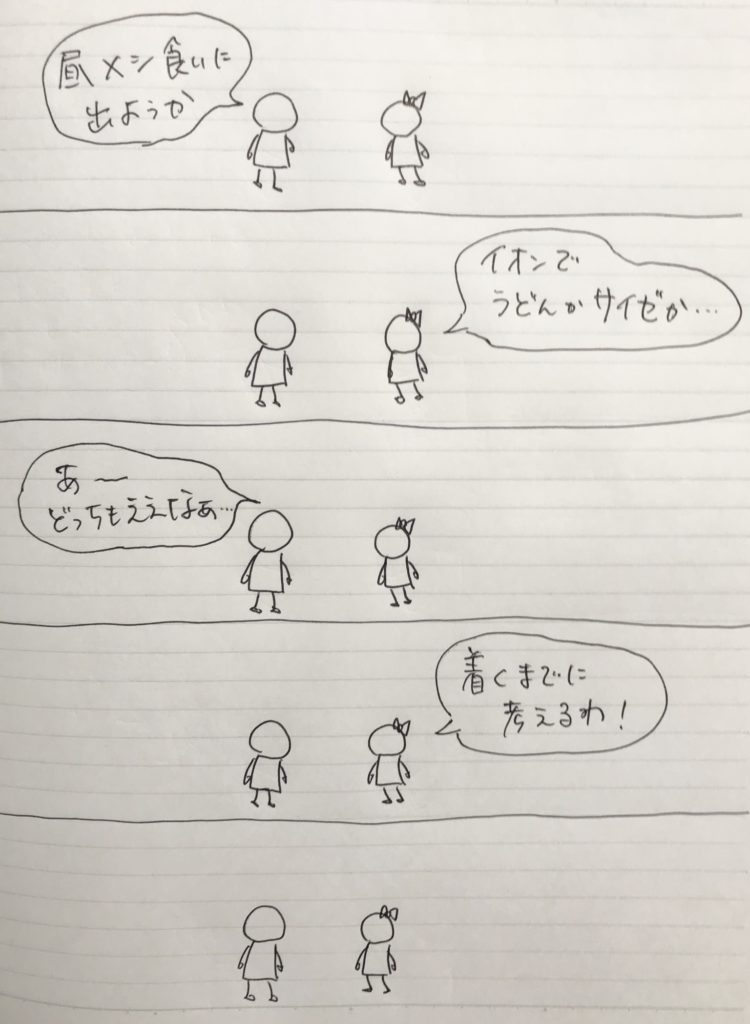 昼メシ食いに
出ようか
イオンで
うどんかサイゼか…
あー
どっちもええなぁ…
着くまでに
考えるわ!